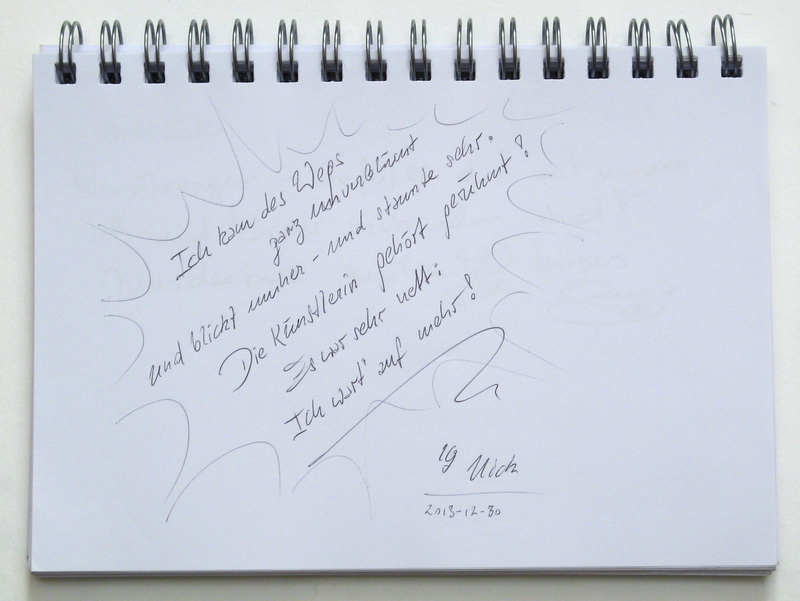 Ich kam des Wegs
ganz unverblümt
und blickt umher - und staunte sehr.
Die Künstlerin gehört gerühmt!
Es war sehr nett:
Ich wart' auf mehr!
2013-12-30